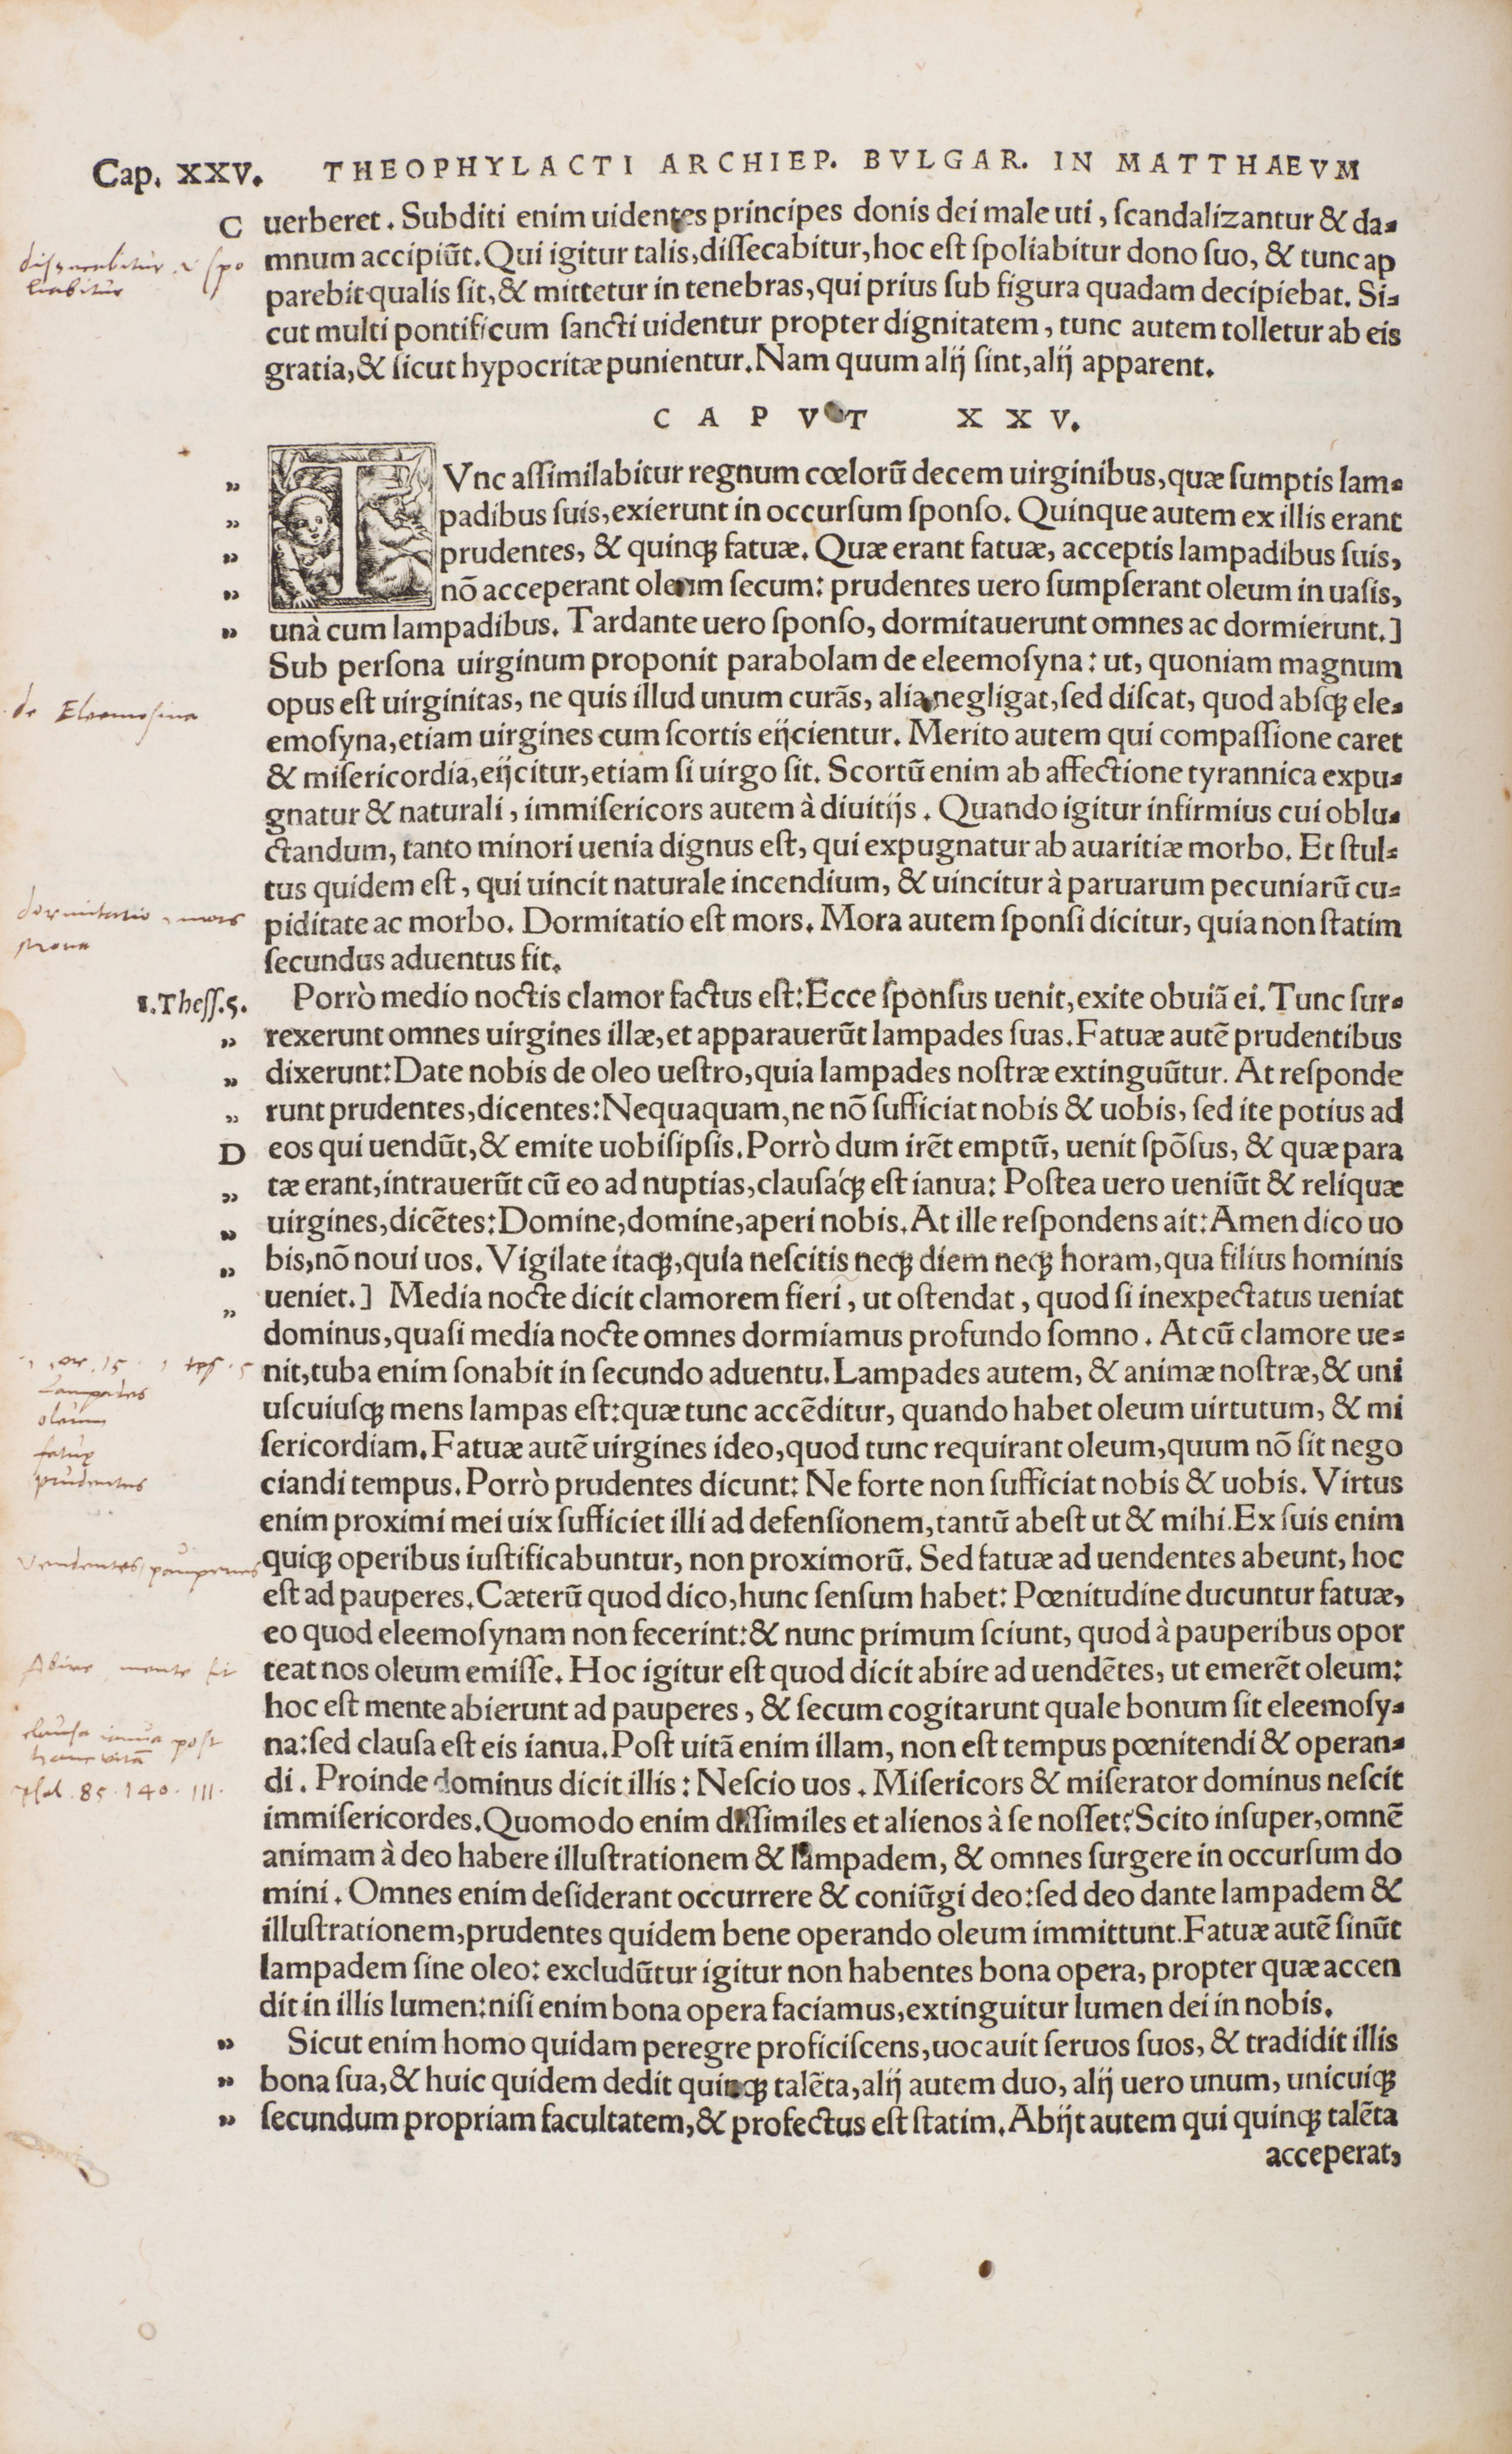 Cap. XXV. THEOPHYLACTI ARCHIEP. BVLGAR. IN MATTHAEVM
C uerberet. Subditi enim uidentes principes donis dei male uti, ſcandalizantur & da-
mnum accipiũt. Qui igitur talis, diſſecabitur, hoc eſt ſpoliabitur dono ſuo, & tunc ap
parebit qualis ſit, & mittetur in tenebras, qui prius ſub figura quadam decipiebat. Si-
cut multi pontificum ſancti uidentur propter dignitatem, tunc autem tolletur ab eis
gratia, & ſicut hypocritæ punientur. Nam quum alij ſint, alij apparent.
CAPVT XXV.
„ TVnc aſſimilabitur regnum cœlorũ decem uirginibus, quæ ſumptis lam-
„ padibus ſuis, exierunt in occurſum ſponſo. Quinque autem ex illis erant
„ prudentes, & quinqꝫ fatuæ. Quæ erant fatuæ, acceptis lampadibus ſuis,
„ nõ acceperant oleum ſecum: prudentes uero ſumpſerant oleum in uaſis,
„ unà cum lampadibus. Tardante uero ſponſo, dormitauerunt omnes ac dormierunt.]
Sub perſona uirginum proponit parabolam de eleemoſyna: ut, quoniam magnum
opus eſt uirginitas, ne quis illud unum curãs, alia negligat, ſed diſcat, quod abſqꝫ ele-
de Eleemosina
emoſyna, etiam uirgines cum ſcortis eijcientur. Merito autem qui compaſſione caret
& miſericordia, eijcitur, etiam ſi uirgo ſit. Scortũ enim ab affectione tyrannica expu-
gnatur & naturali, immiſericors autem à diuitijs. Quando igitur infirmius cui oblu-
ctandum, tanto minori uenia dignus eſt, qui expugnatur ab auaritiæ morbo. Et ſtul-
tus quidem eſt, qui uincit naturale incendium, & uincitur à paruarum pecuniarũ cu-
dormitatio mors
piditate ac morbo. Dormitatio eſt mors. Mora autem ſponſi dicitur, quia non ſtatim
mora
ſecundus aduentus fit.
1. Theſſ. 5. Porrò medio noctis clamor factus eſt: Ecce ſponſus uenit, exite obuiã ei. Tunc ſur-
„ rexerunt omnes uirgines illæ, et apparauerũt lampades ſuas. Fatuæ autẽ prudentibus
„ dixerunt: Date nobis de oleo ueſtro, quia lampades noſtræ extinguũtur. At reſponde
„ runt prudentes, dicentes: Nequaquam, ne nõ ſufficiat nobis & uobis, ſed ite potius ad
D eos qui uendũt, & emite uobiſipſis. Porrò dum irẽt emptũ, uenit ſpõſus, & quæ para
„ tæ erant, intrauerũt cũ eo ad nuptias, clauſáqꝫ eſt ianua: Poſtea uero ueniũt & reliquæ
„ uirgines, dicẽtes: Domine, domine, aperi nobis. At ille reſpondens ait: Amen dico uo
„ bis, nõ noui uos. Vigilate itaqꝫ, quia neſcitis neqꝫ diem neqꝫ horam, qua filius hominis
„ ueniet.] Media nocte dicit clamorem fieri, ut oſtendat, quod ſi inexpectatus ueniat
dominus, quaſi media nocte omnes dormiamus profundo ſomno. At cũ clamore ue-
nit, tuba enim ſonabit in ſecundo aduentu. Lampades autem, & animæ noſtræ, & uni
Lampades
uſcuiuſqꝫ mens lampas eſt: quæ tunc accẽditur, quando habet oleum uirtutum, & mi
oleum
ſericordiam. Fatuæ autẽ uirgines ideo, quod tunc requirant oleum, quum nõ ſit nego
fatuę
ciandi tempus. Porrò prudentes dicunt: Ne forte non ſufficiat nobis & uobis. Virtus
prudentes
enim proximi mei uix ſufficiet illi ad defenſionem, tantũ abeſt ut & mihi. Ex ſuis enim
Vendentes pauperes
quiqꝫ operibus iuſtificabuntur, non proximorũ. Sed fatuæ ad uendentes abeunt, hoc
eſt ad pauperes. Cæterũ quod dico, hunc ſenſum habet: Pœnitudine ducuntur fatuæ,
eo quod eleemoſynam non fecerint: & nunc primum ſciunt, quod à pauperibus opor
Abire mente
teat nos oleum emiſſe. Hoc igitur eſt quod dicit abire ad uendẽtes, ut emerẽt oleum:
hoc eſt mente abierunt ad pauperes, & ſecum cogitarunt quale bonum ſit eleemoſy-
clausa ianua post
hanc vitã
na: ſed clauſa eſt eis ianua. Poſt uitã enim illam, non eſt tempus pœnitendi & operan-
psal. 85. 140. 111.
di. Proinde dominus dicit illis: Neſcio uos. Miſericors & miſerator dominus neſcit
immiſericordes. Quomodo enim diſſimiles et alienos à ſe noſſet? Scito inſuper, omnẽ
animam à deo habere illuſtrationem & lampadem, & omnes ſurgere in occurſum do
mini. Omnes enim deſiderant occurrere & coniũgi deo: ſed deo dante lampadem &
illuſtrationem, prudentes quidem bene operando oleum immittunt. Fatuæ autẽ ſinũt
lampadem ſine oleo: excludũtur igitur non habentes bona opera, propter quæ accen
dit in illis lumen: niſi enim bona opera faciamus, extinguitur lumen dei in nobis.
„ Sicut enim homo quidam peregre proficiſcens, uocauit ſeruos ſuos, & tradidit illis
„ bona ſua, & huic quidem dedit quinqꝫ talẽta, alij autem duo, alij uero unum, unicuiqꝫ
„ ſecundum propriam facultatem, & profectus eſt ſtatim. Abijt autem qui quinqꝫ talẽta
acceperat,